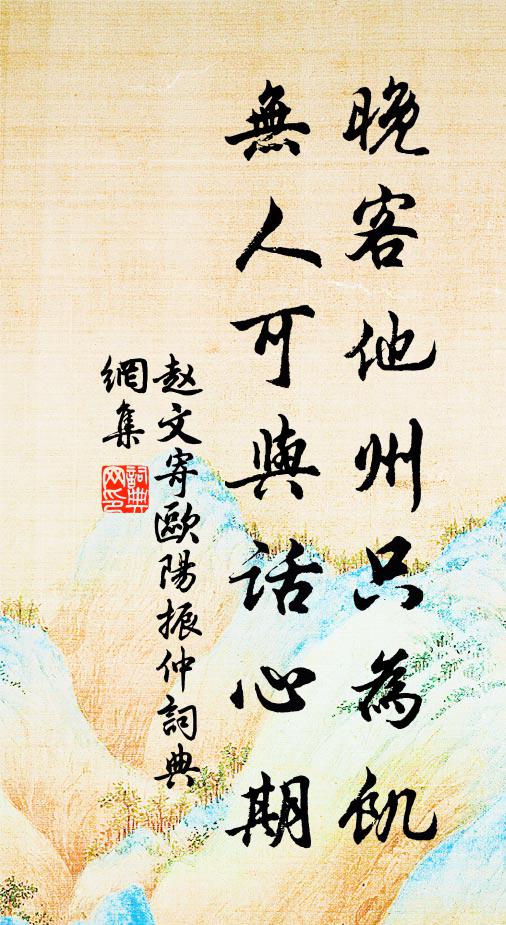 晚客他州只為飢
無人可與话心期
赵文寄歐陽振仲詞典
網集
詞典
网印